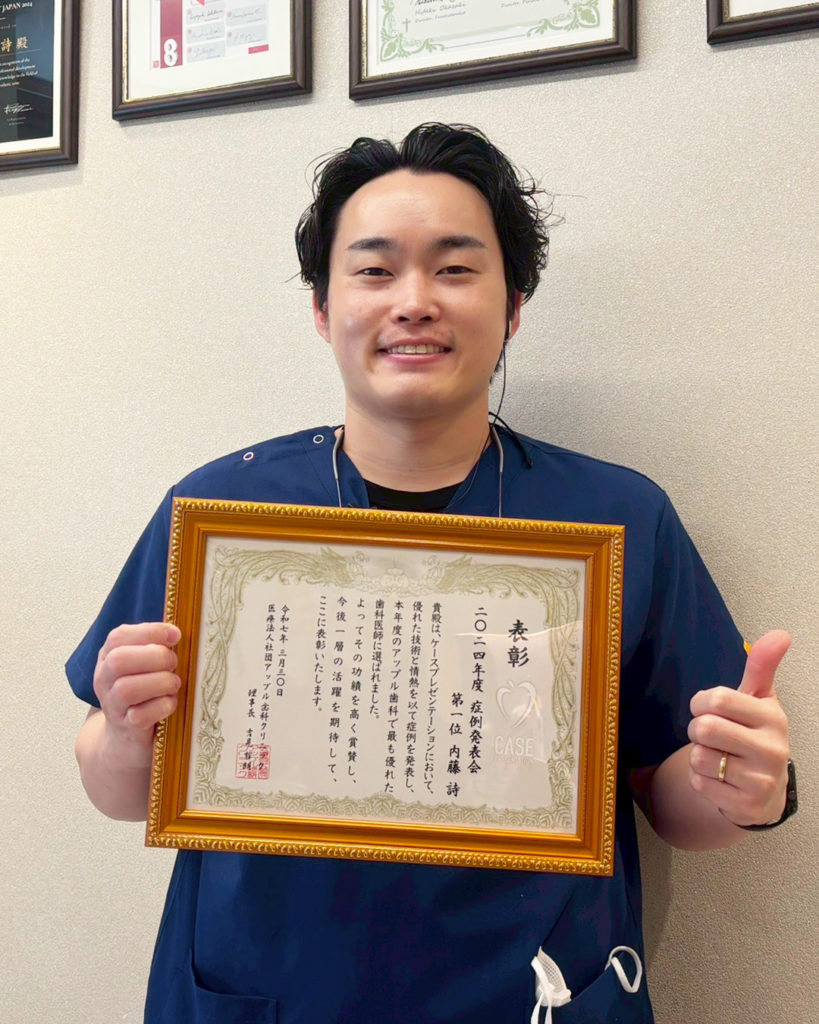 JAPAN 2024
詩 殿
8
表彰
CASE
二〇二四年度 症例発表会
第一位 内藤 詩
貴殿は、ケースプレゼンテーションにおいて、
優れた技術と情熱を以て症例を発表し、
本年度のアップル歯科で最も優れた
歯科医師に選ばれました。
よってその功績を高く賞賛し、
今後一層の活躍を期待して、
ここに表彰いたします。
令和七年 三月三〇日
医療法人社団アップル歯科クリニック
理事長